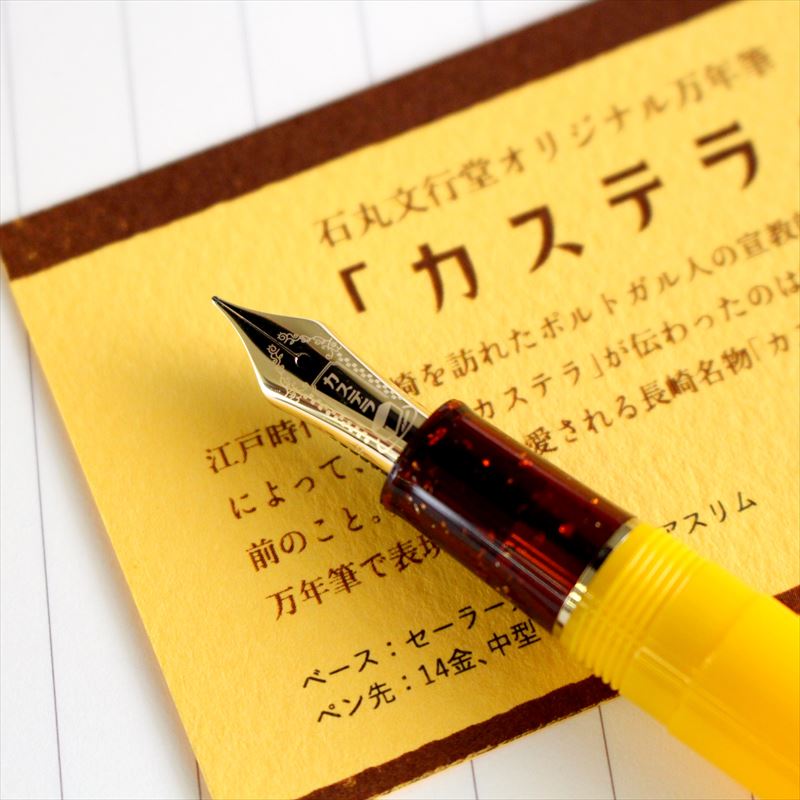 石丸文行堂オリジナル万年筆
「カステラ
崎を訪れたポルトガル人の宣教
江戸時 カステラ」が伝わったのは
によって、 愛される長崎名物「カ
前のこと。
万年筆で表現 アスリム
ベース：セーラー
ペン先：14金、中型
カステラ